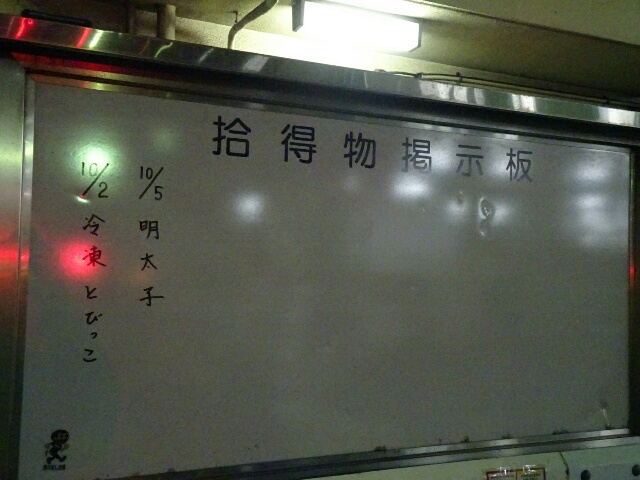 拾得物掲示板
10/5 明太子
10/2 冷凍とびっこ